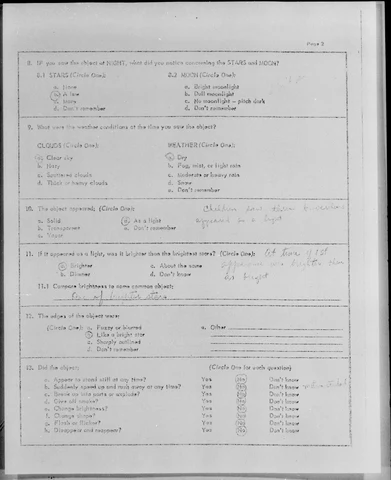 Page 2
8. IF you saw the object at NIGHT, what did you notice concerning the STARS and MOON?
8.1 STARS (Circle One): 8.2 MOON (Circle One):
a. None a. Bright moonlight
b. A few b. Dull moonlight
c. Many c. No moonlight – pitch dark
d. Don't remember d. Don't remember
9. What were the weather conditions at the time you saw the object?
CLOUDS (Circle One): WEATHER (Circle One):
a. Clear sky a. Dry
b. Hazy b. Fog, mist, or light rain
c. Scattered clouds c. Moderate or heavy rain
d. Thick or heavy clouds d. Snow
e. Don't remember
10. The object appeared: (Circle One):
a. Solid d. As a light
b. Transparent e. Don't remember
c. Vapor
appeared as a light
11. If it appeared as a light, was it brighter than the brightest stars? (Circle One):
a. Brighter c. About the same
b. Dimmer d. Don't know
11.1 Compare brightness to some common object:
12. The edges of the object were:
(Circle One): a. Fuzzy or blurred e. Other
b. Like a bright star
c. Sharply outlined
d. Don't remember
13. Did the object: (Circle One for each question)
a. Appear to stand still at any time? Yes No Don't know
b. Suddenly speed up and rush away at any time? Yes No Don't know
c. Break up into parts or explode? Yes No Don't know
d. Give off smoke? Yes No Don't know
e. Change brightness? Yes No Don't know
f. Change shape? Yes No Don't know
g. Flash or flicker? Yes No Don't know
h. Disappear and reappear? Yes No Don't know